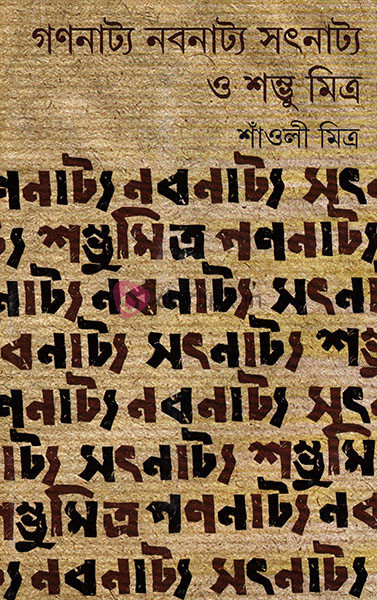 গণনাট্য নবনাট্য সৎনাট্য
ও শম্ভু মিত্র
শাঁওলী মিত্র
ণনাট্য নবনাট্য সৎ
্য শম্ভুমিত্র গণনাট্য
নাট্য নবনাট্য সৎনা
বনাট্য সৎনাট্য শম্ভু
ণনাট্য নবনাট্য সৎন
নাট্য সৎনাট্য শম্ভুমি
শম্ভুমিত্র গণনাট্য নব
ট্য নবনাট্য সৎনাট্য